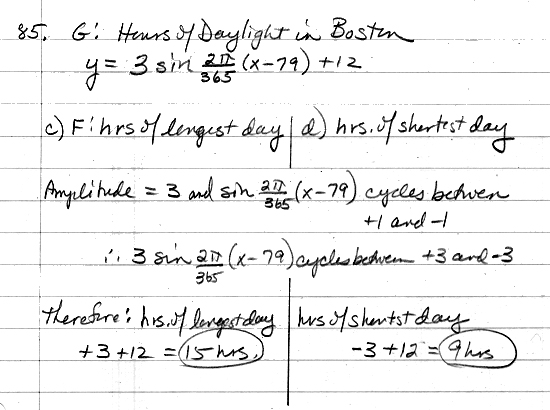 85. G: Hours of Daylight in Boston
y = 3 sin 2π/365 (x-79) +12
c) F: hrs of longest day | d) hrs. of shortest day
Amplitude = 3 and sin 2π/365 (x-79) cycles between
+1 and -1
∴ 3 sin 2π/365 (x-79) cycles between +3 and -3
therefore: hrs. of longest day | hrs of shortst day
+3 +12 = 15 hrs. | -3 +12 = 9 hrs